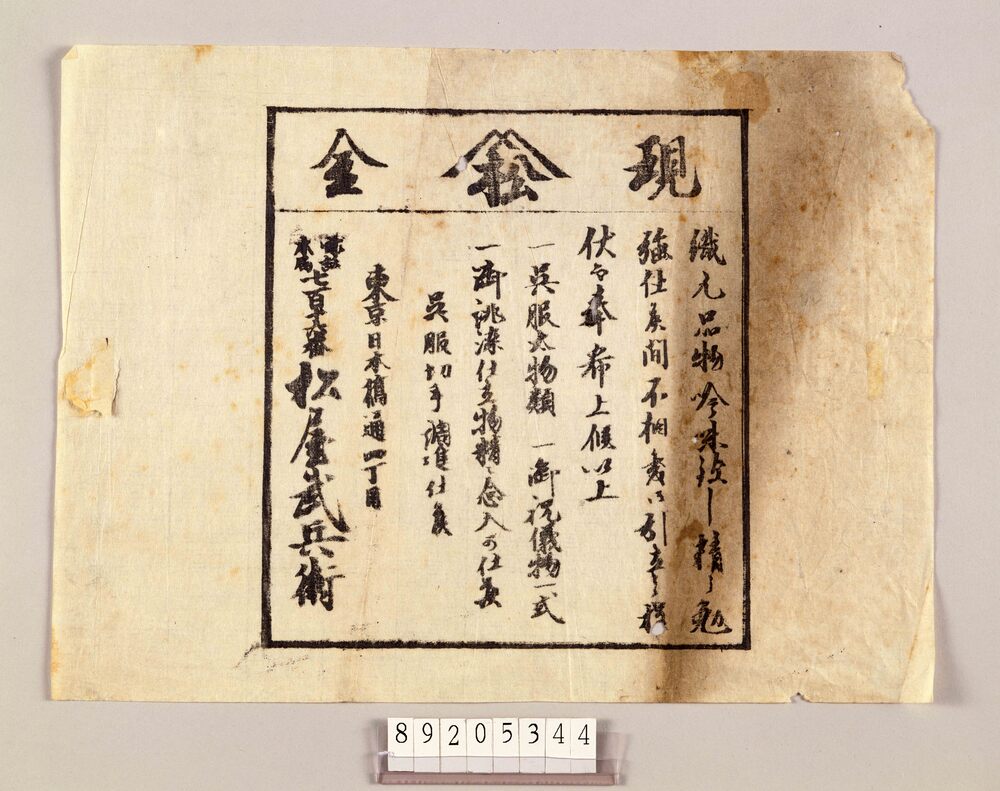 現 松 金
織元品物吟味致し精々勉
強仕候間不相変御引立之程
伏而奉希上候以上
一呉服太物類 一御祝儀物一式
一御誂染仕立物精々念入可仕候
呉服切手調進仕候
東京日本橋通四丁目
電話本局七百
松屋武兵衛
89205344